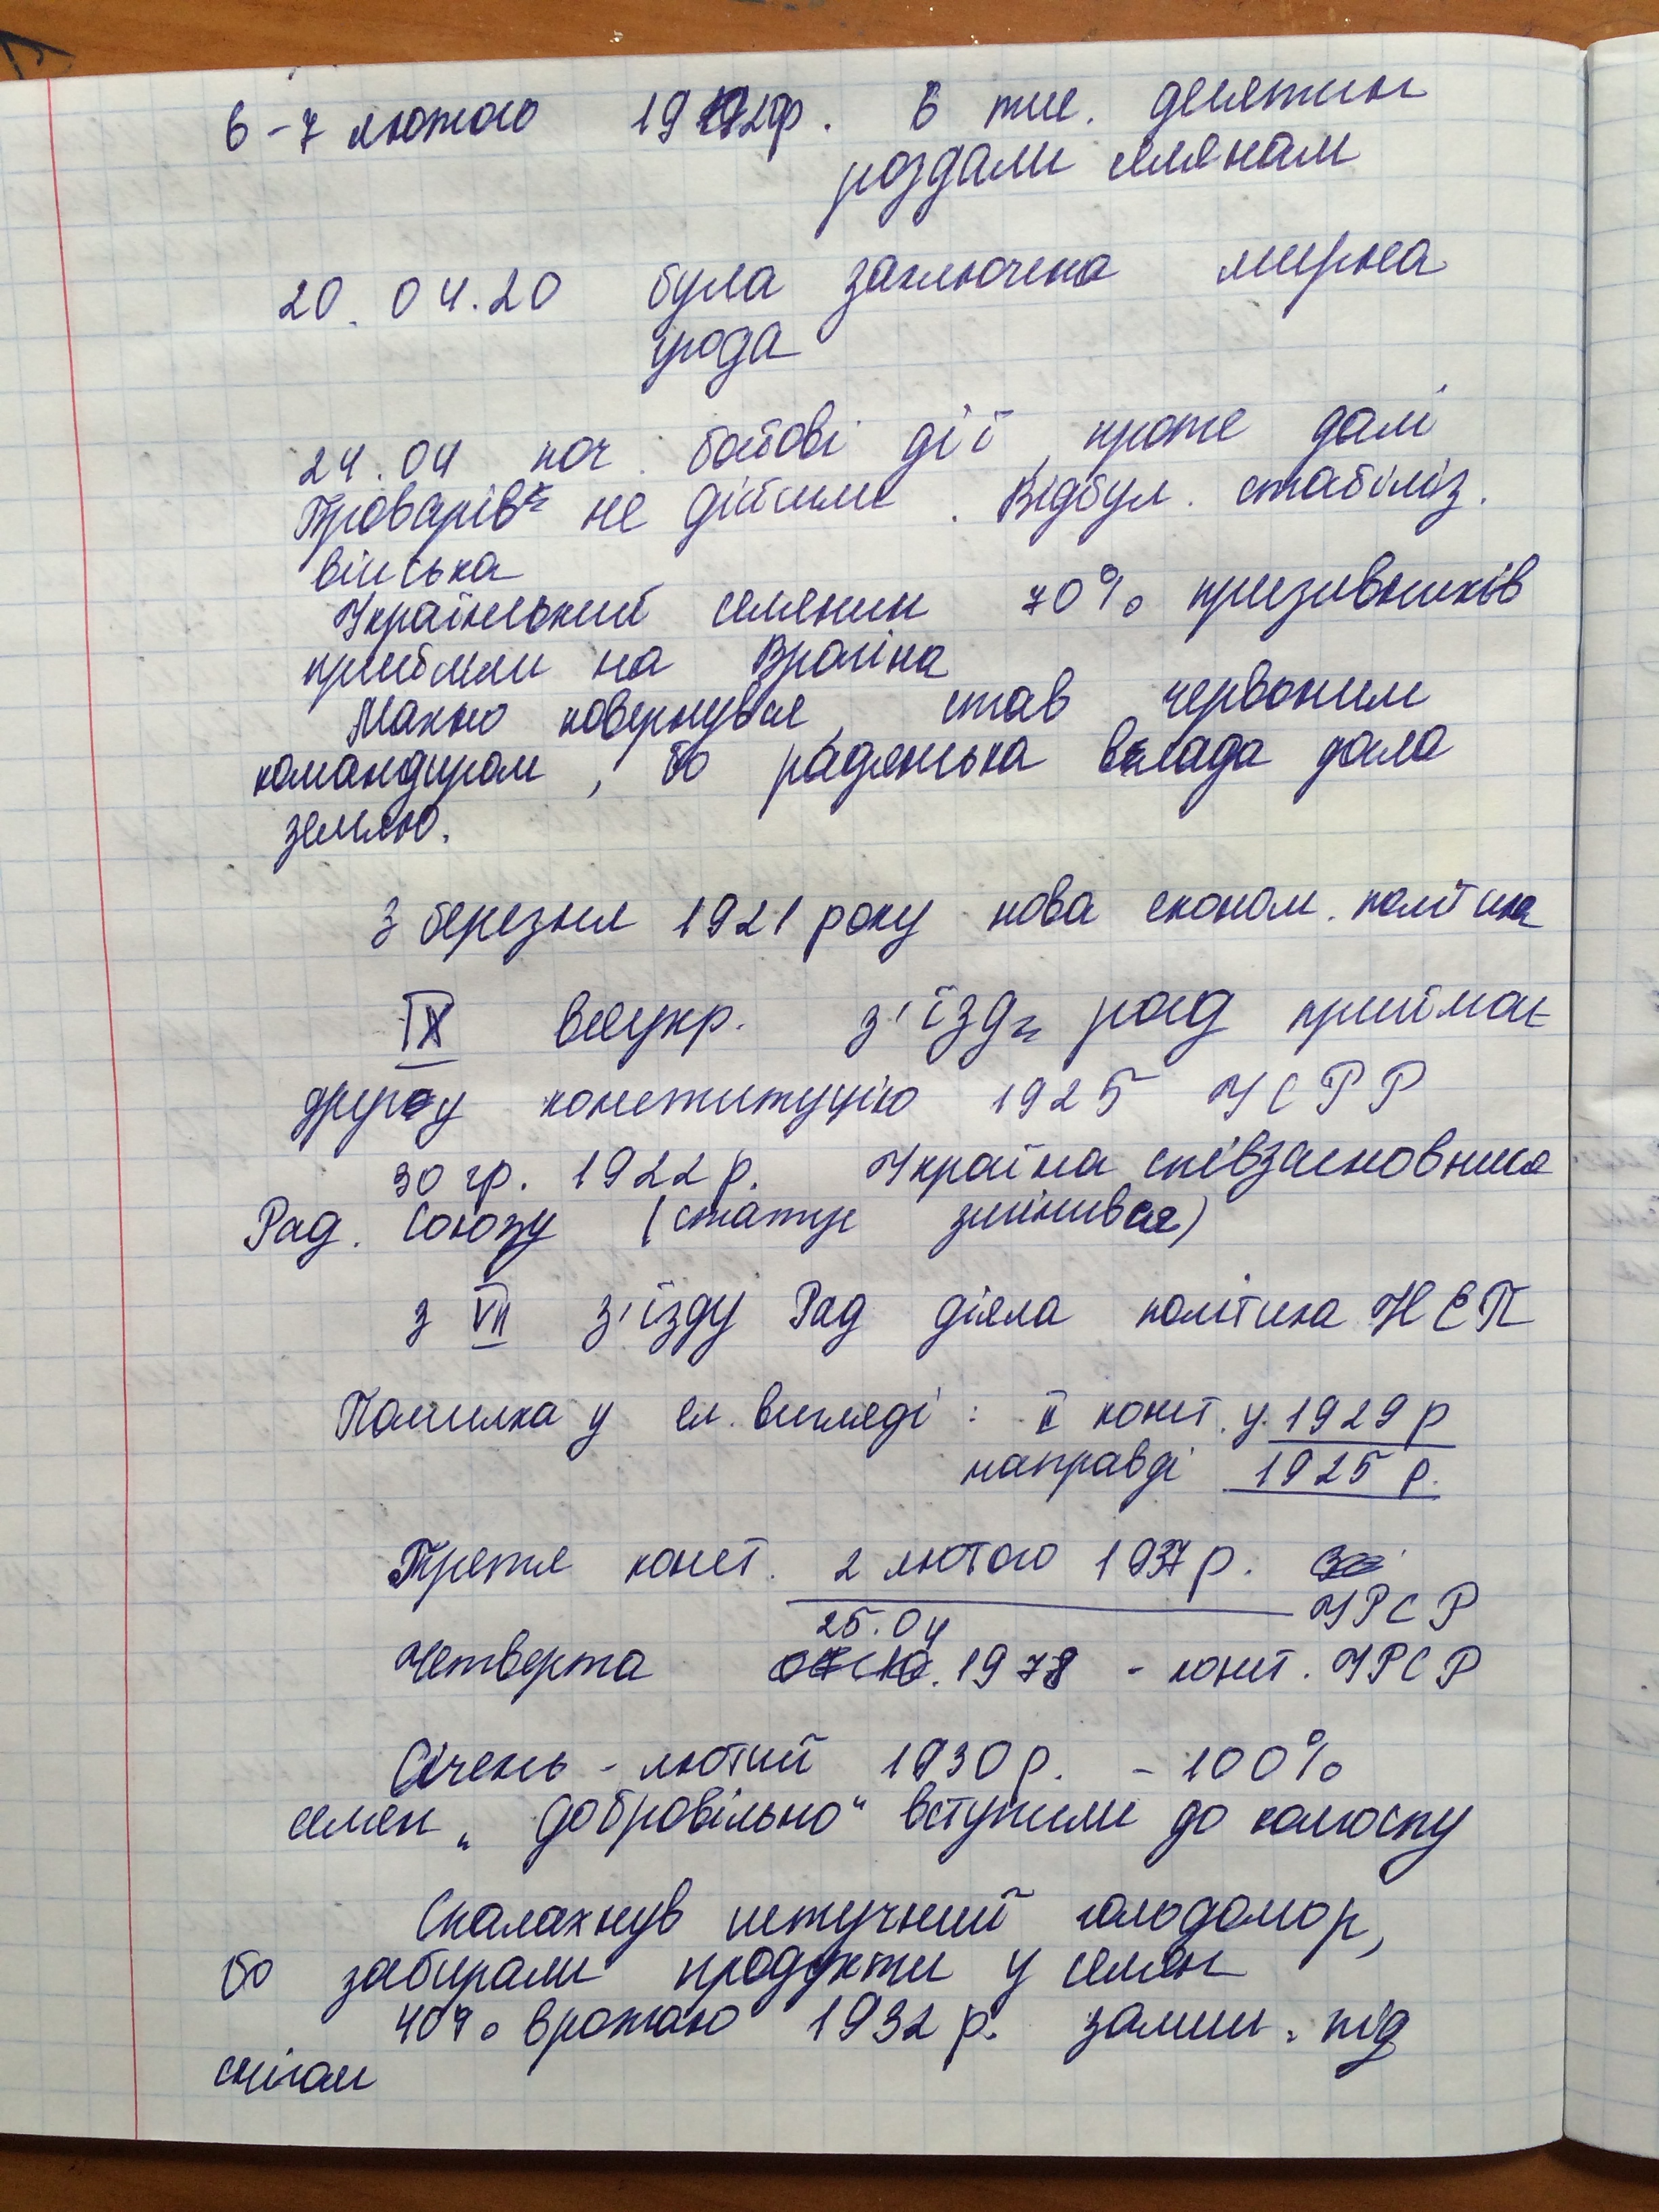 6-7 лютого 192 р. 6 тис. десятин
роздали селянам
20.04.20 була заключена мирна
угода
24.04 поч. бойові дії, проте далі
не дійшли. Відбул. стабіліз.
війська
Український селянин 70% призивників
прийшли на
Махно повернувся, став червоним
командиром, бо радянська влада дала
землю.
З березня 1921 року нова економ. політика
IX всеукр. з'їзд рад приймає
другу конституцію 1925 УСРР
30 гр. 1922 р. Україна співзасновниця
Рад. Союзу (статус змінився)
з VII з'їзду Рад діяла політика НЕП
Помилка у ел. вигляді: II конст. у 1929 р
направді 1925 р.
Третя конст. 2 лютого 1937 р.
УРСР
25.04
Четверта 1978 - конст. УРСР
Січень - лютий 1930 р. - 100%
селян „добровільно" вступили до колгоспу
Спалахнув штучний голодомор,
бо забирали продукти у селян
40% врожаю 1932 р. залиш. під
снігом